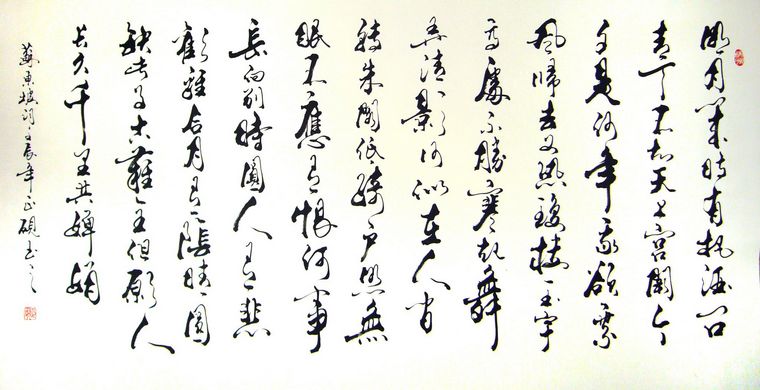 明月幾時有把酒问
青天不知天上宫闕今
夕是何年我欲乘
風歸去又恐瓊樓玉宇
高處不勝寒起舞
弄清影何似在人间
轉朱閣低綺户照無
眠不應有恨何事
長向别時圓人有悲
歡離合月有陰晴圓
缺此事古難全但願人
长久千里共嬋娟
蘇東坡词壬辰年正硯书之